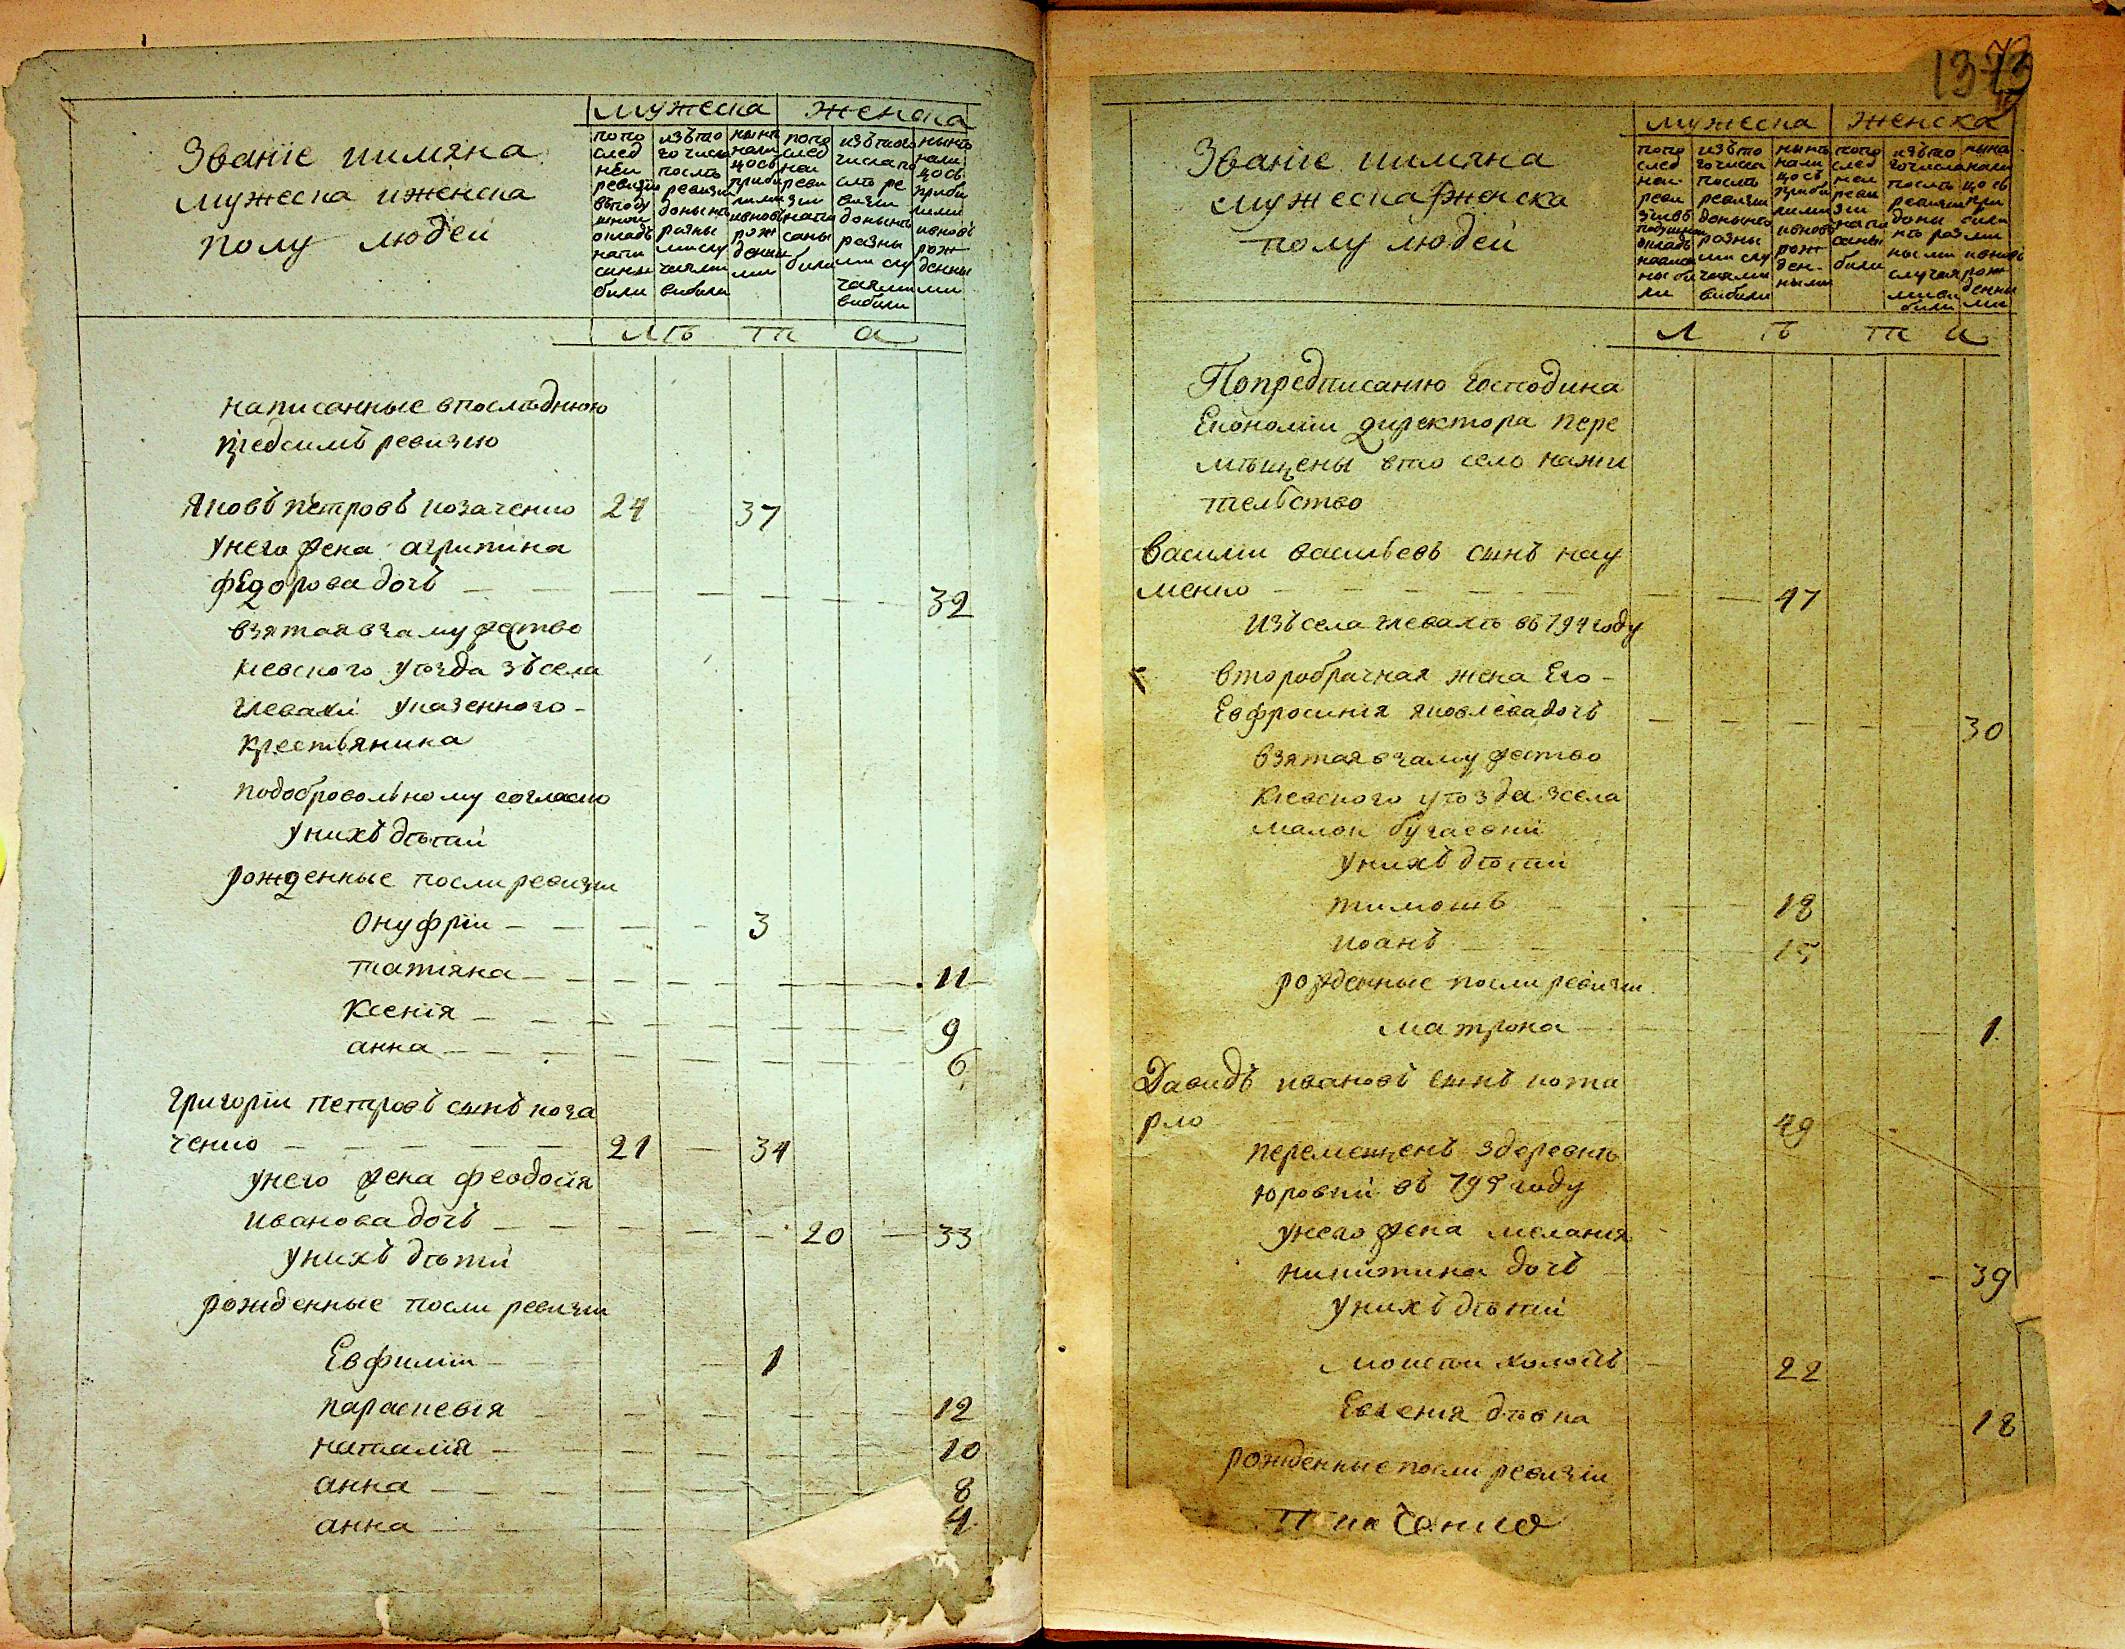 Званіе иимяна
мужеска иженска
полу людей
мужеска женска
попо след ней ревизіи вподу шной окладъ напи саны были
изъто го числа послѣ ревизіи донынѣ разны ми слу чаями выбили
нынѣ нали цо съ приби лими ивновь рож денны ми
попо след ней реви зіи напи саны были
изътого числа по слѣ ре визіи донынѣ разны ми слу чаями выбили
нынѣ нали цо съ приби лими ивновь рож денны ми
лѣ та
написанные впослѣднюю
предсимъ ревизію
Яковъ петровъ козаченко 24 37
унего жена агрипина
федорова дочь 32
взятая взамужство
киевского уѣзда зъ села
глевахи указенного
крестьянина
подобровольному согласію
унихъ дѣти
рожденные посли ревизіи
Онуфріи 3
татіяна 11
Ксенія 9
анна 6
григоріи петровъ сынъ коза
ченко 21 34
унего жена феодосія
иванова дочь 20 33
унихъ дѣти
рожденные посли ревизіи
Евфиміи 1
параскевія 12
наталія 10
анна 8
анна 4
1373
Званіе иимяна
мужеска иженска
полу людей
мужеска женска
попо след ней реви зіи въ подушной окладъ написа ны бы ли
изъто го числа послѣ ревизіи донынѣ разны ми слу чаями выбили
нынѣ нали цо съ приби лими ивновь рож ден ными
попо след ней реви зіи напи саны были
изъто гочисла послѣ ревизіи доны нѣ раз ными случая ми вы били
нынѣ нали цо съ при били ми ивновь рож денны ми
л ѣ т а
Попредписанію господина
Економіи директора пере
мѣщены вто село нажи
тельство
василіи васильевъ сынъ нау
менко 47
изъ села глевахъ въ 794 году
второбрачная жена Его
Евфросинія яковлева дочь 30
взятая взамужство
киевского уѣзда зсела
малои бугаевки
унихъ дѣти
тимошъ 18
иоанъ 15
рожденные посли ревизіи
матрона 1
Давидъ ивановъ сынъ кота
рло 49
перемещенъ здеревнѣ
юровки въ 795 году
унего жена меланія
никитина дочь 39
унихъ дѣти
моисеи холостъ 22
Евгенія дѣвка 18
рожденные посли ревизіи